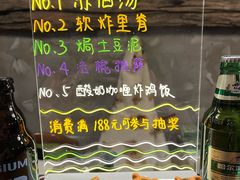 No.1 冻柏汤
No.2 软炸里脊
No.3 焗土豆泥
No.4 香脆
No.5 酸奶咖喱炸鸡饭
消费满188元可参与抽奖
NIUM
哈尔滨